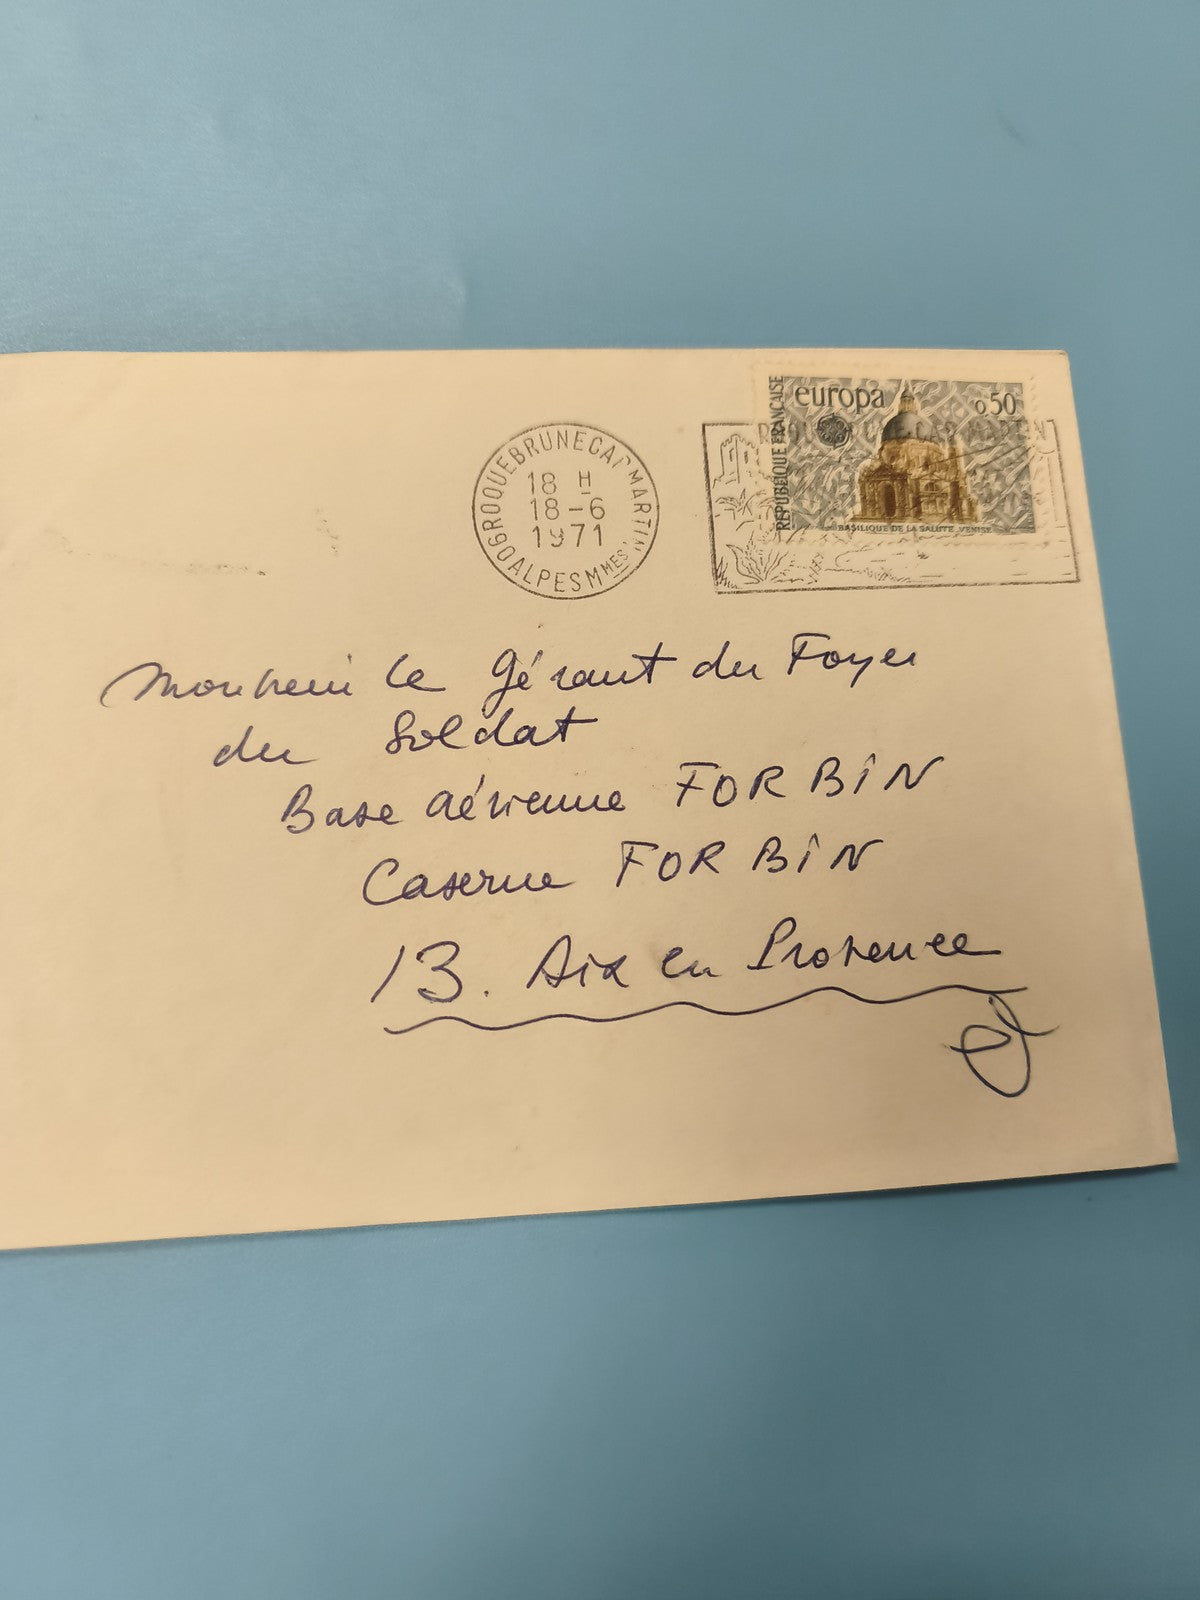 europa
0,50
RÉPUBLIQUE FRANÇAISE
BASILIQUE DE LA SALUTE VENISE
ROQUEBRUNE-CAP-MARTIN
ROQUEBRUNE CAP MARTIN
18 H
18 -6
1971
06 ALPES MMES
Monsieur le Gérant du Foyer
du Soldat
Base aérienne FORBIN
Caserne FORBIN
13. Aix en Provence